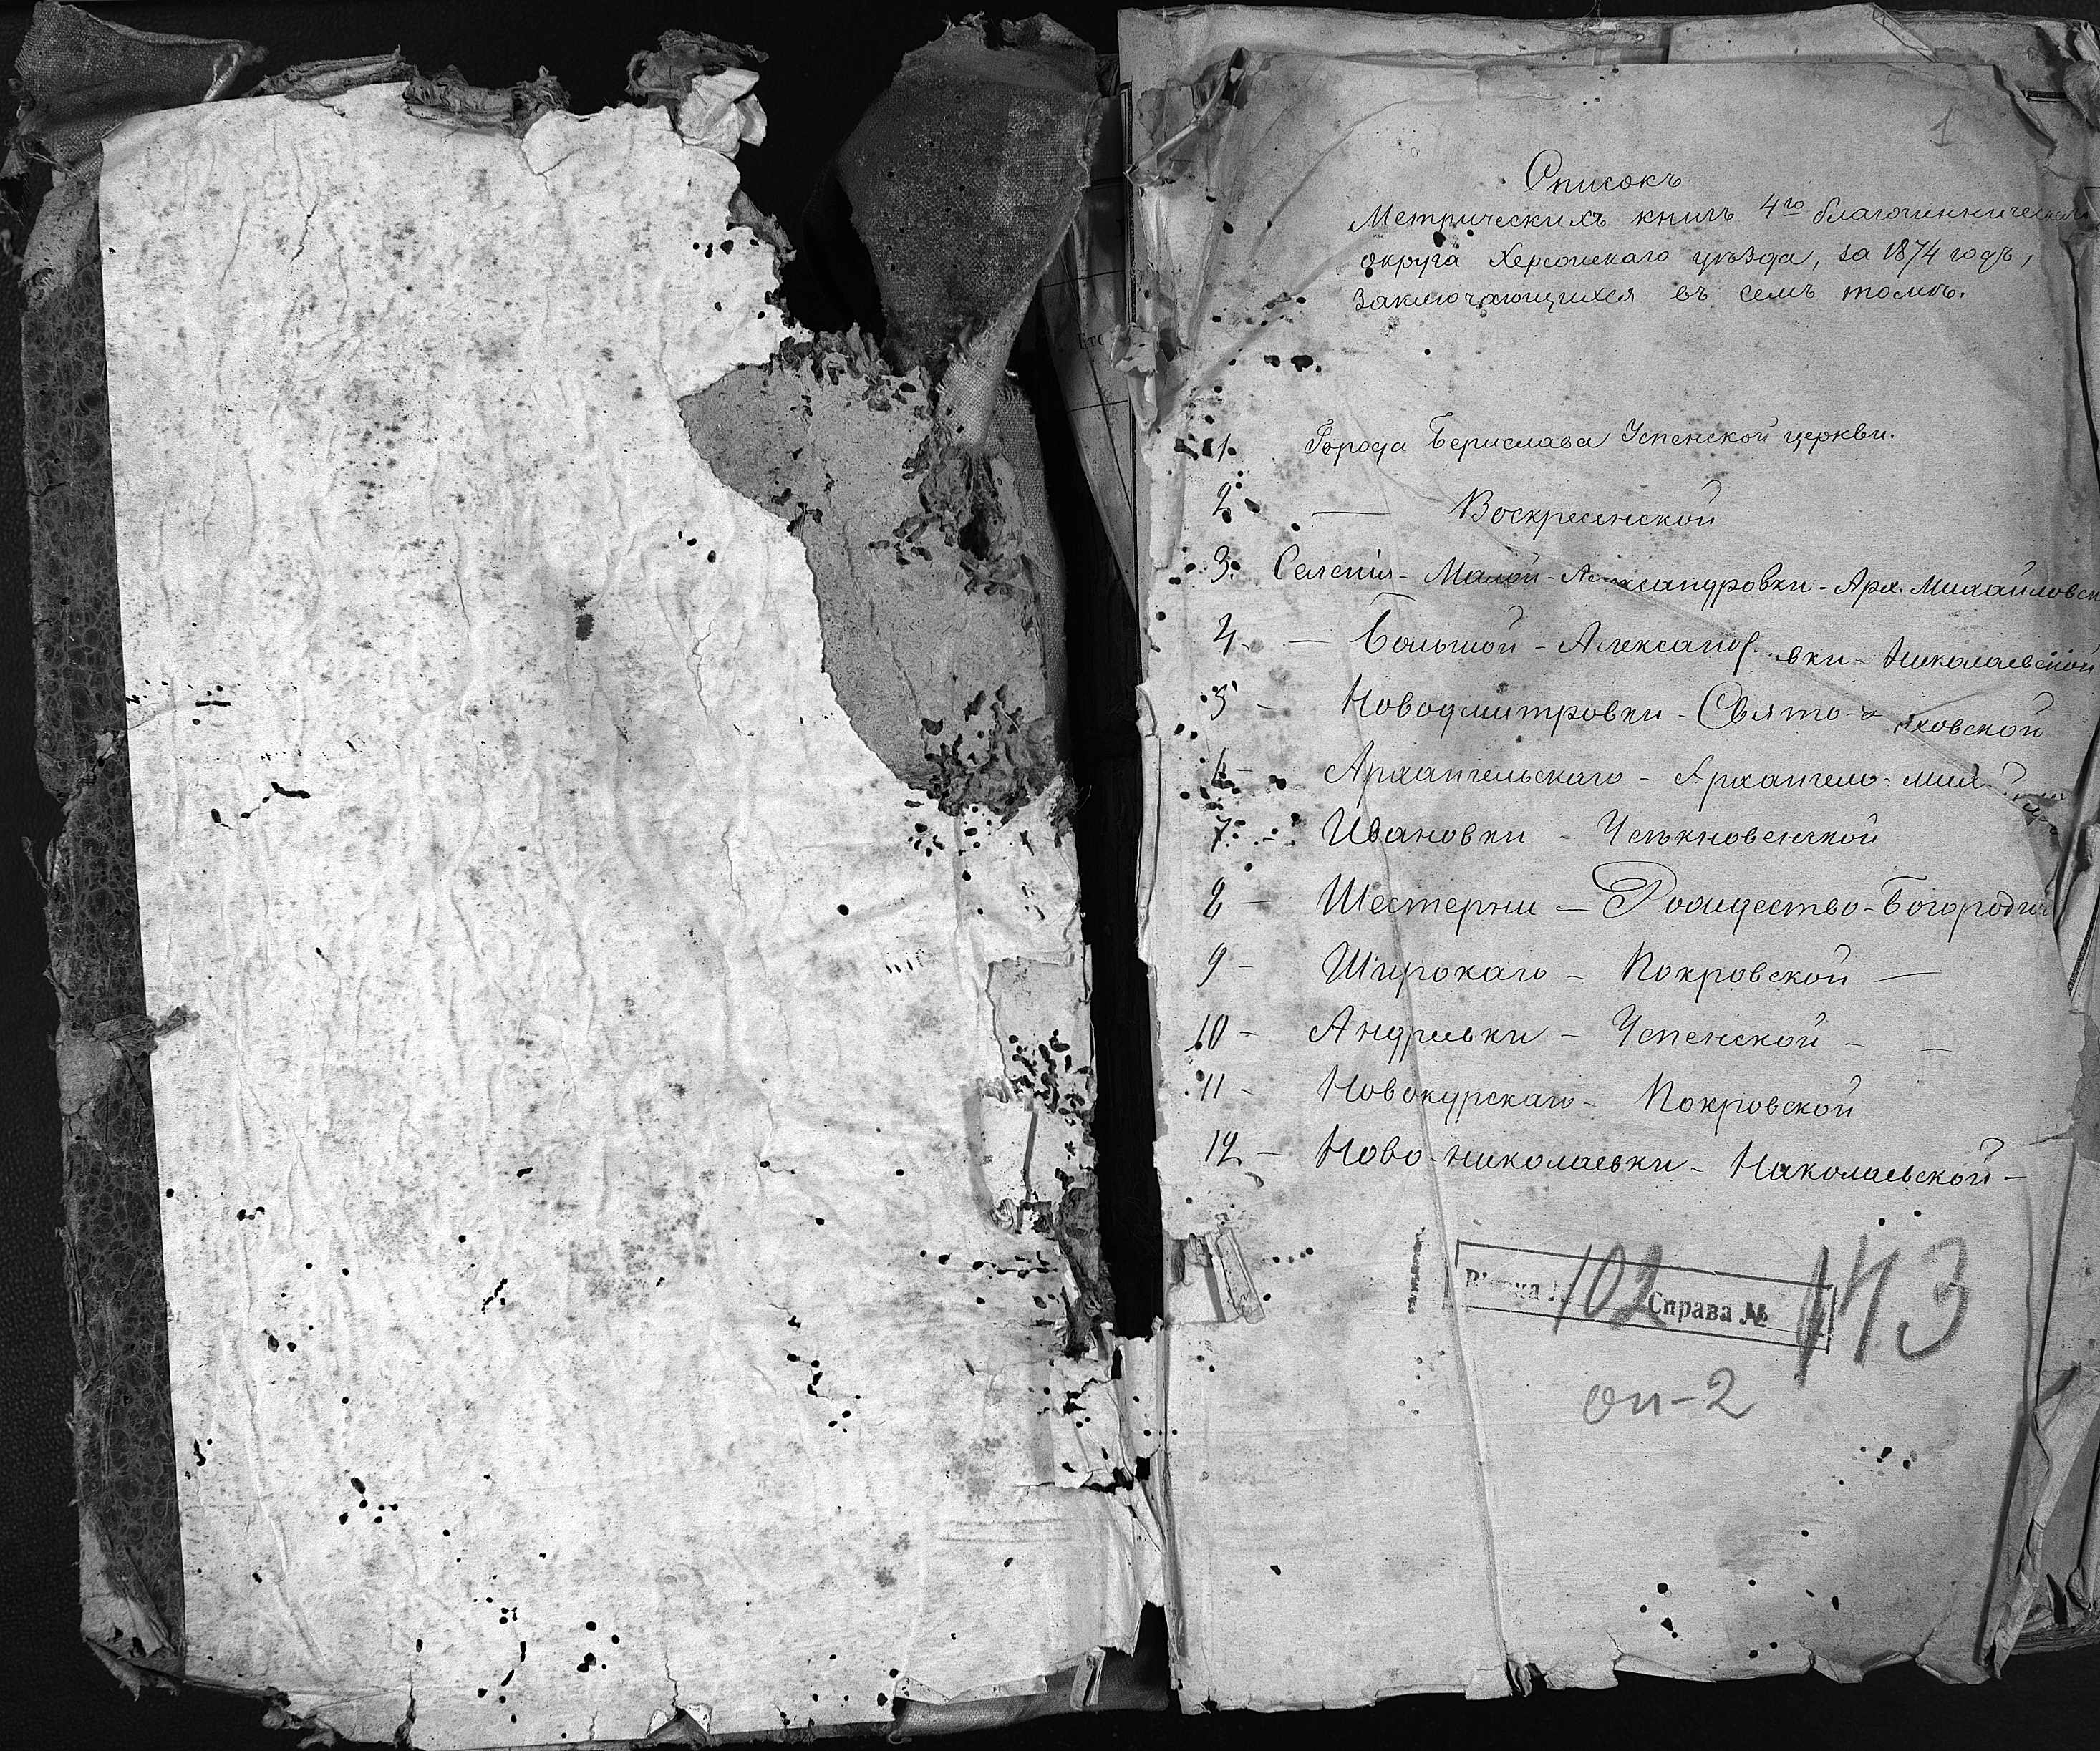 1
Списокъ
Метрическихъ книгъ 4го благочинническаго
округа Херсонскаго уѣзда, за 1874 годъ,
Заключающихся въ семъ томѣ.
1. Города Берислава Успенской церкви.
2. — Воскресенской
3. Селенія - Малой - Александровки - Арх. Михайловск
4. — Большой - Александ вки - Николаевской
5 - Новодмитровки - Свято- ховской
6 - Архангельскаго - Архангело - мих
7. - Ивановки - Усѣкновенской
8 - Шестерни - Рождество-Богородич
9 - Широкаго - Покровской —
10 - Андреевки - Успенской - -
11 - Новокурскаго - Покровской
12 - Ново-николаевки - Николаевской -
102 Справа № 143
оп-2